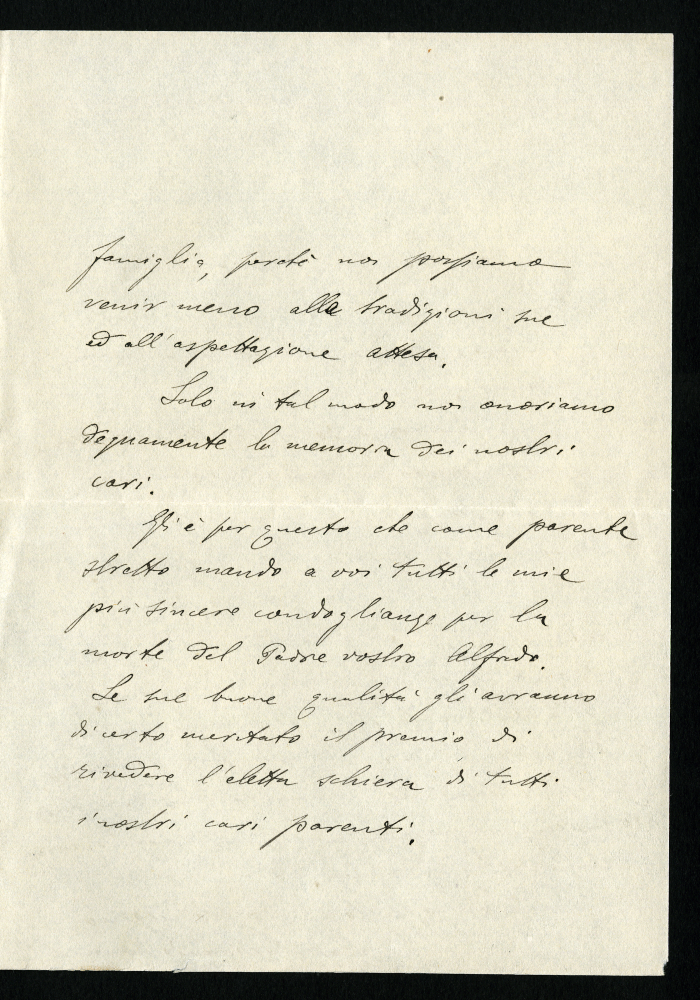 famiglia, perchè non possiamo
venir meno alle tradizioni sue
ed all'aspettazione attesa.
Solo in tal modo noi onoriamo
degnamente la memoria dei nostri
cari.
Gli è per questo che come parente
stretto mando a voi tutti le mie
più sincere condoglianze per la
morte del Padre vostro Alfredo.
Le sue buone qualità gli avranno
di certo meritato il premio di
rivedere l'eletta schiera di tutti
i nostri cari parenti.